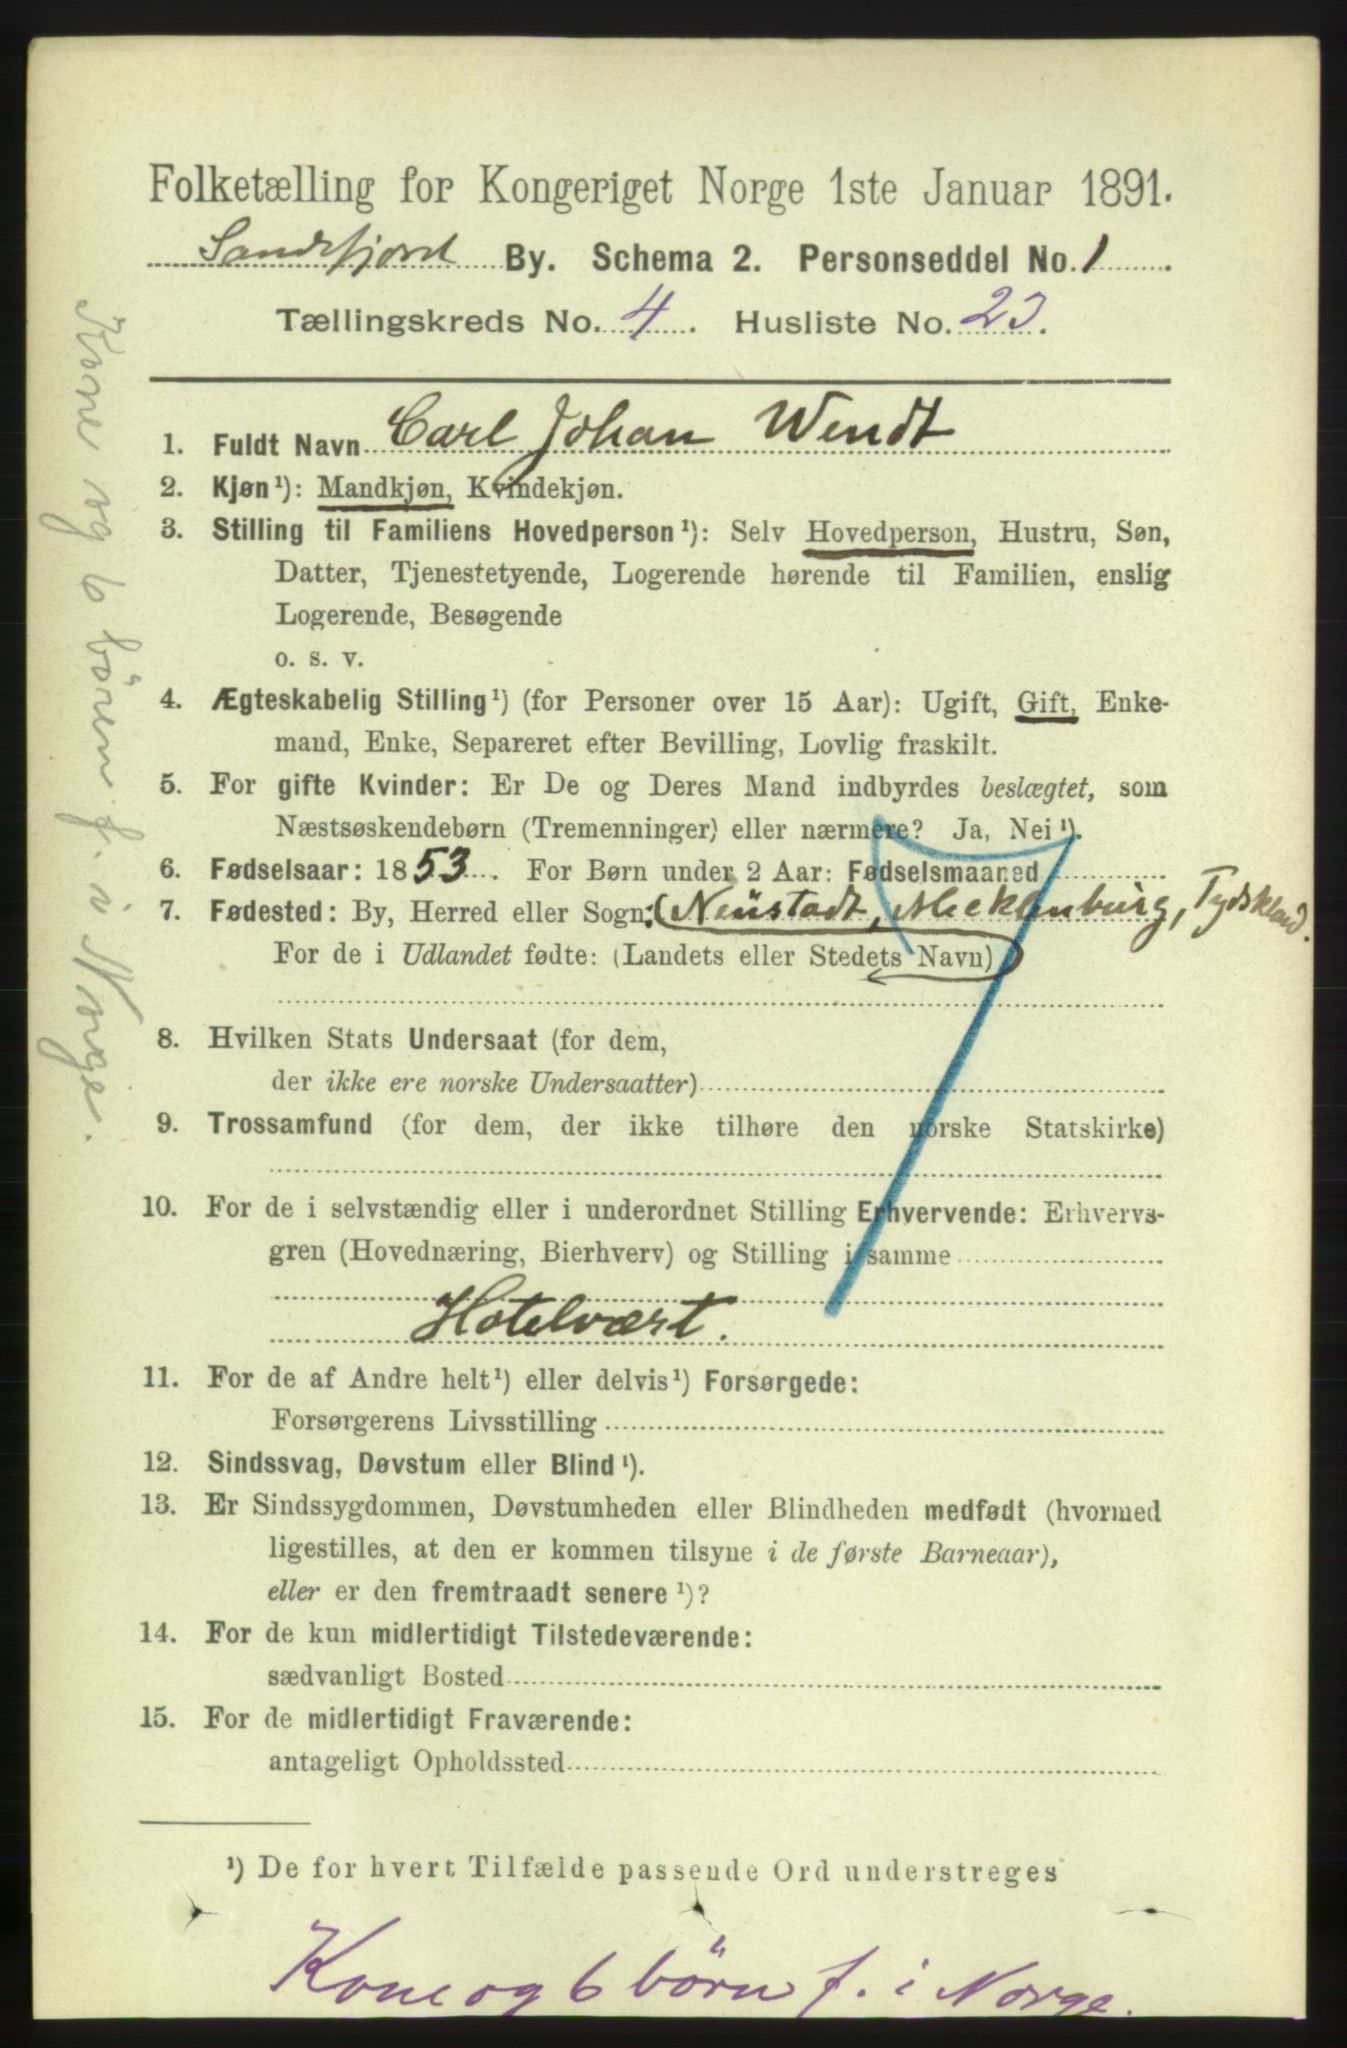 Folketælling for Kongeriget Norge 1ste Januar 1891.
Sandefjord By. Schema 2. Personseddel No. 1.
Tællingskreds No. 4. Husliste No. 23.
1. Fuldt Navn Carl Johan Wendt
2. Kjøn¹): Mandkjøn, Kvindekjøn.
3. Stilling til Familiens Hovedperson¹): Selv Hovedperson, Hustru, Søn,
Datter, Tjenestetyende, Logerende hørende til Familien, enslig
Logerende, Besøgende
o. s. v.
4. Ægteskabelig Stilling¹) (for Personer over 15 Aar): Ugift, Gift, Enke-
mand, Enke, Separeret efter Bevilling, Lovlig fraskilt.
5. For gifte Kvinder: Er De og Deres Mand indbyrdes beslægtet, som
Næstsøskendebørn (Tremenninger) eller nærmere? Ja, Nei¹).
6. Fødselsaar: 1853. For Børn under 2 Aar: Fødselsmaaned
7. Fødested: By, Herred eller Sogn: (Neüstadt, Mecklenbürg, Tydskland.
For de i Udlandet fødte: (Landets eller Stedets Navn)
8. Hvilken Stats Undersaat (for dem,
der ikke ere norske Undersaatter)
9. Trossamfund (for dem, der ikke tilhøre den norske Statskirke)
10. For de i selvstændig eller i underordnet Stilling Erhvervende: Erhvervs-
gren (Hovednæring, Bierhverv) og Stilling i samme
Hotelvært.
11. For de af Andre helt¹) eller delvis¹) Forsørgede:
Forsørgerens Livsstilling
12. Sindssvag, Døvstum eller Blind¹).
13. Er Sindssygdommen, Døvstumheden eller Blindheden medfødt (hvormed
ligestilles, at den er kommen tilsyne i de første Barneaar),
eller er den fremtraadt senere¹)?
14. For de kun midlertidigt Tilstedeværende:
sædvanligt Bosted
15. For de midlertidigt Fraværende:
antageligt Opholdssted
¹) De for hvert Tilfælde passende Ord understreges
Kone og 6 börn f. i Norge.
Kone og 6 börn f. i Norge.
7